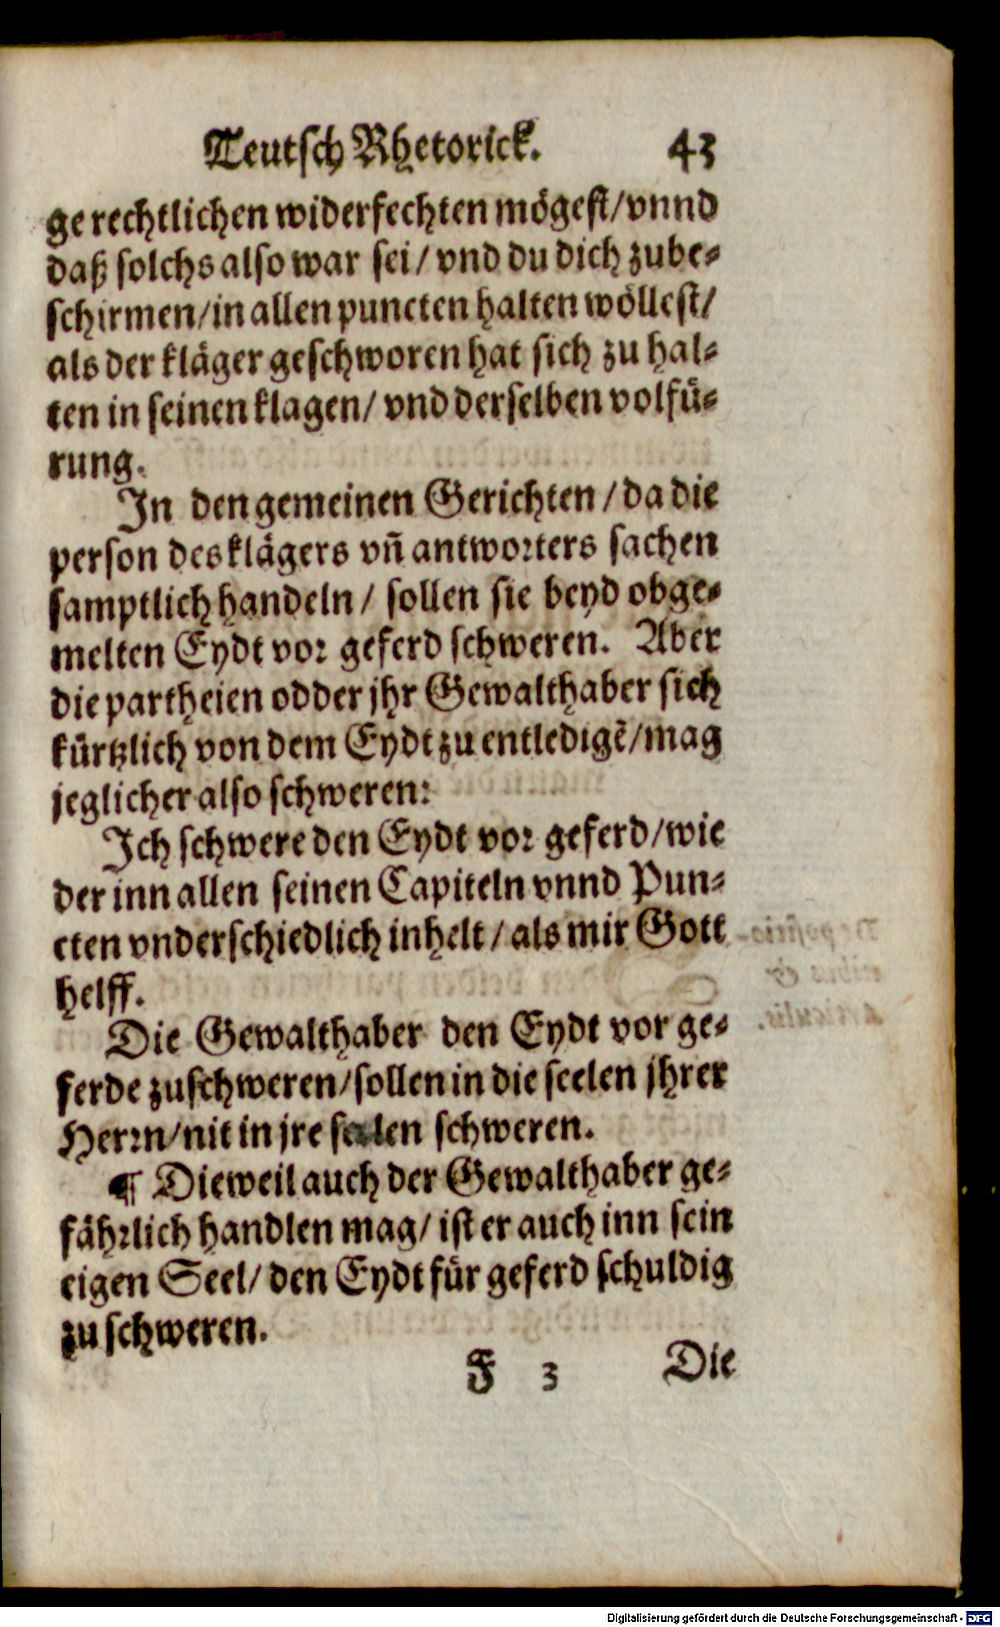 Teutsch Rhetorick. 43
ge rechtlichen widerfechten mögest/vnnd
daß solchs also war sei/ vnd du dich zube-
schirmen/in allen puncten halten wöllest/
als der kläger geschworen hat sich zu hal-
ten in seinen klagen/ vnd derselben volfü-
rung.
In den gemeinen Gerichten/da die
person des klägers vñ antworters sachen
samptlich handeln/ sollen sie beyd obge-
melten Eydt vor geferd schweren. Aber
die partheien odder jhr Gewalthaber sich
kürtzlich von dem Eydt zu entledigẽ/mag
jeglicher also schweren:
Ich schwere den Eydt vor geferd/wie
der inn allen seinen Capiteln vnnd Pun-
cten vnderschiedlich inhelt/als mir Gott
helff.
Die Gewalthaber den Eydt vor ge-
ferde zuschweren/sollen in die seelen jhrer
Herrn/nit in jre seelen schweren.
¶ Dieweil auch der Gewalthaber ge-
fährlich handlen mag/ ist er auch inn sein
eigen Seel/ den Eydt für geferd schuldig
zu schweren.
F 3 Die
Digitalisierung gefördert durch die Deutsche Forschungsgemeinschaft - DFG